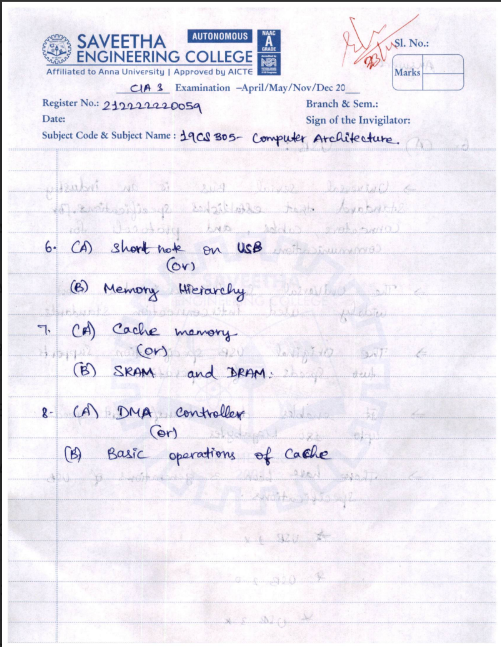 SAVEETHA
ENGINEERING COLLEGE
AUTONOMOUS
NAAC
A
GRADE
Affiliated to Anna University | Approved by AICTE
Sl. No.:
Marks
CIA 3 Examination –April/May/Nov/Dec 20
Register No.: 212222220059
Branch & Sem.:
Date:
Sign of the Invigilator:
Subject Code & Subject Name : 19CS305- Computer Architecture.
6. (A) Short note on USB
(or)
(B) Memory Hierarchy
7. (A) Cache memory
(or)
(B) SRAM and DRAM:
8. (A) DMA Controller
(or)
(B) Basic operations of Cache